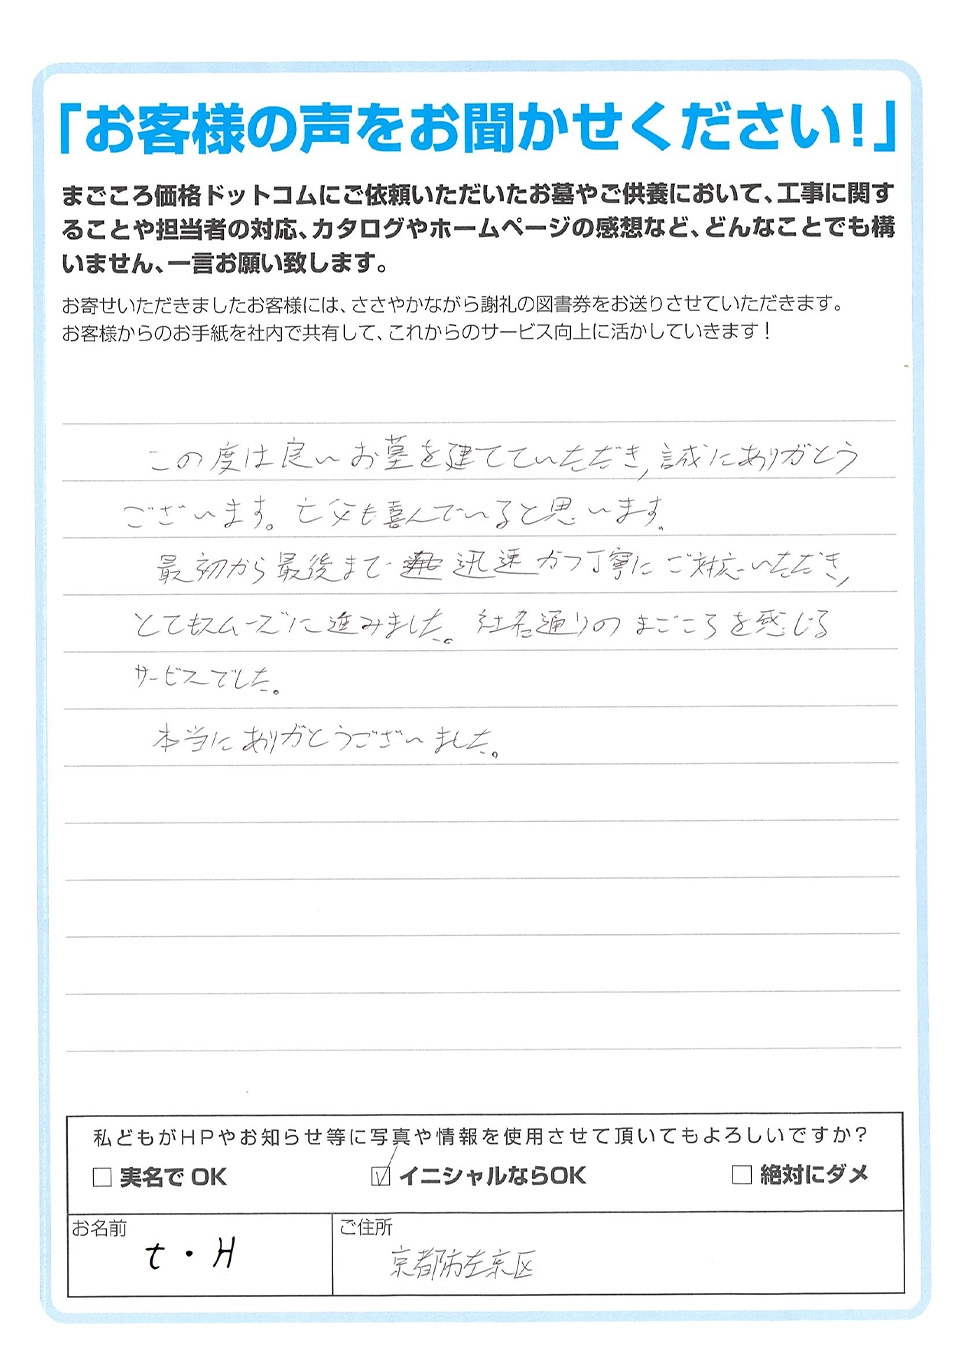 「お客様の声をお聞かせください！」
まごころ価格ドットコムにご依頼いただいたお墓やご供養において、工事に関す
ることや担当者の対応、カタログやホームページの感想など、どんなことでも構
いません、一言お願い致します。
お寄せいただきましたお客様には、ささやかながら謝礼の図書券をお送りさせていただきます。
お客様からのお手紙を社内で共有して、これからのサービス向上に活かしていきます！
この度は良いお墓を建てていただき,誠にありがとう
ございます。亡父も喜んでいると思います。
最初から最後まで 迅速かつ丁寧にご対応いただき,
とてもスムーズに進みました。社名通りのまごころを感じる
サービスでした。
本当にありがとうございました。
私どもがHPやお知らせ等に写真や情報を使用させて頂いてもよろしいですか？
□ 実名でOK ☑ イニシャルならOK □ 絶対にダメ
お名前 ご住所
t・H 京都市左京区